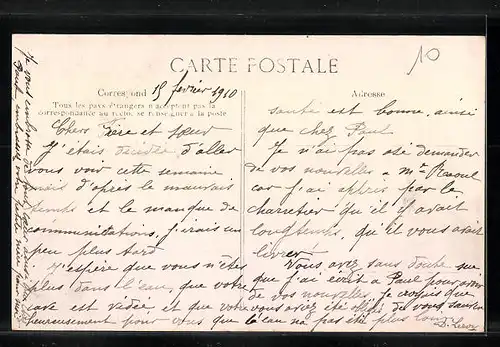 CARTE POSTALE
10
Correspond 15 février 1910
Tous les pays étrangers n'acceptent pas la
correspondance au recto, se renseigner à la poste
Chers Frère et sœur
J'étais décidée d'aller
vous voir cette semaine
mais d'après le mauvais
temps et le manque de
communications, j'irais un
peu plus tard
J'espère que vous n'êtes
plus dans l'eau, que votre
cave est vidée et que votre
heureusement pour vous que
Adresse
santé est bonne, ainsi
que chez Paul
Je n'ai pas osé demander
de vos nouvelles à Mr Raoul
car j'ai appris par le
charretier qu'il y avait
longtemps, qu'il vous avait
livré
Vous avez sans doute su
que j'ai écrit à Paul pour avoir
de vos nouvelles. Je croyais que
vous avez été de vous
l'eau n'a pas été plus longue
Je vous embrasse
Paul embrasse son